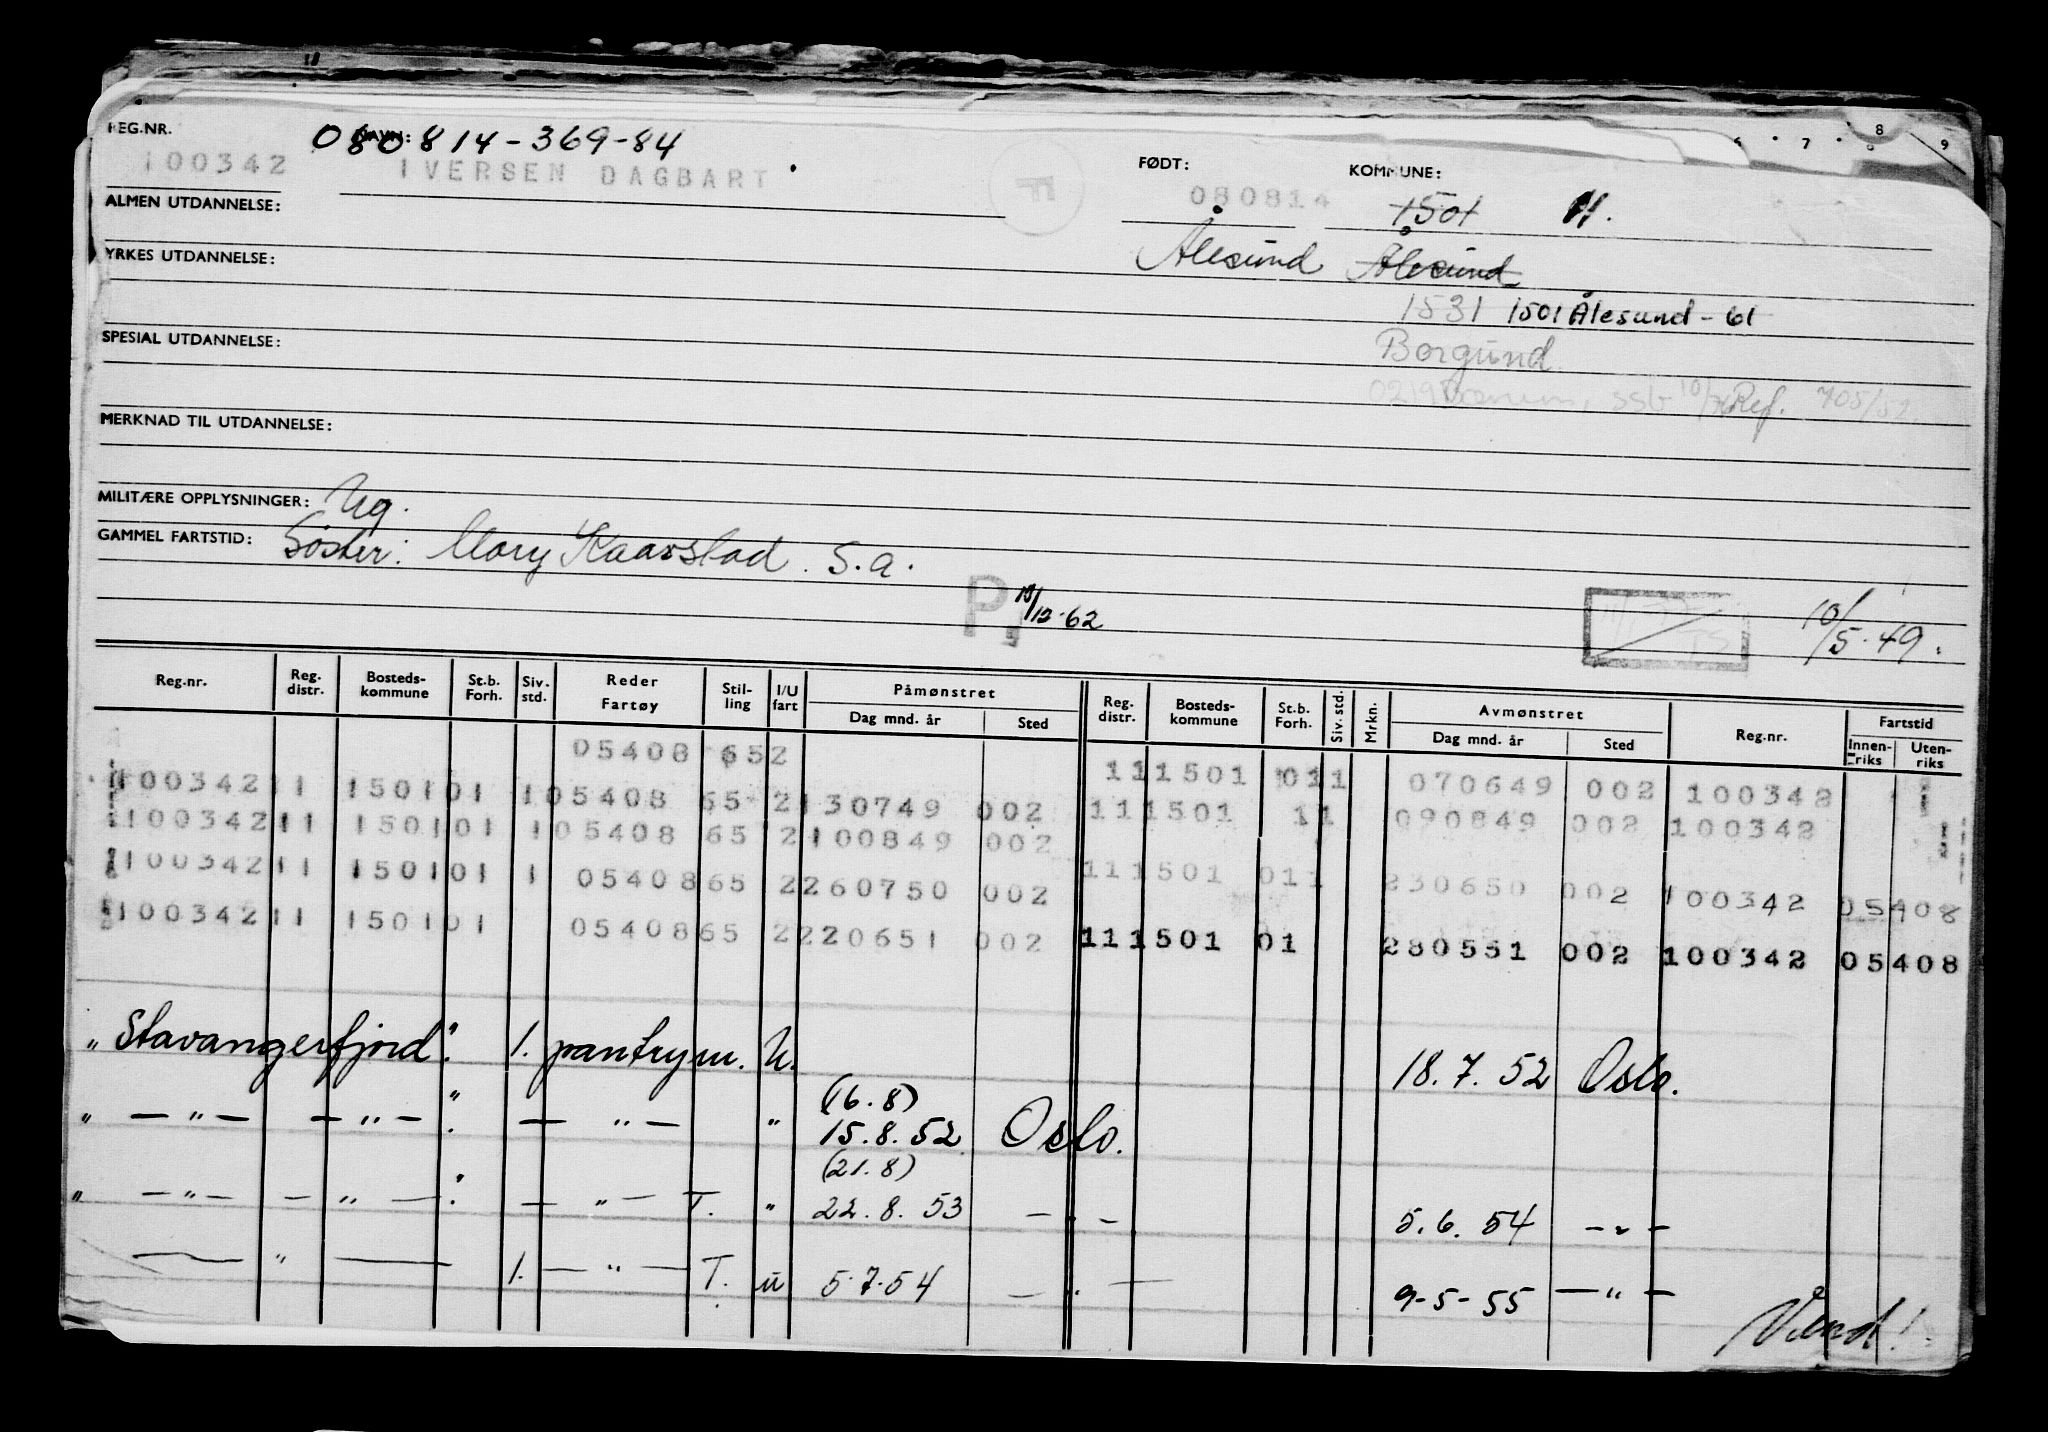 REG.NR. NAVN: 080814-369-84 FØDT: KOMMUNE:
100342 IVERSEN DAGBART 080814 1501 11.
ALMEN UTDANNELSE:
Ålesund Ålesund
YRKES UTDANNELSE:
1531 1501 Ålesund - 61
SPESIAL UTDANNELSE: Borgund.
0219 Bærum, ssb 10/ Ref. 705/52.
MERKNAD TIL UTDANNELSE:
MILITÆRE OPPLYSNINGER: Ug.
GAMMEL FARTSTID: Søster: Mary Kaarstad. S.a.
P. 10/12-62
10/5.49.
Reg.nr. Reg. distr. Bosteds-kommune St.b. Forh. Siv. std. Reder Fartøy Stil-ling I/U fart Påmønstret Dag mnd. år Sted Reg. distr. Bosteds-kommune St.b. Forh. Siv. std. Mrkn. Avmønstret Dag mnd. år Sted Reg.nr. Fartstid Innen-riks Uten-riks
05408 652 111501 011 070649 002 100342
100342 11 150101 105408 65 2 130749 002 111501 11 090849 002 100342
100342 11 150101 105408 65 2 100849 002 111501 011 230650 002 100342 05408
100342 11 150101 1 05408 65 2 260750 002 111501 01 280551 002 100342 05408
100342 11 150101 05408 65 2 220651 002
"Stavangerfjord". 1. pantrym. U. 18.7.52 Oslo.
(16.8)
" — " — — " — ". — " — " 15.8.52 Oslo.
(21.8)
" — " — — " — ". — " — T. " 22.8.53 — " — 5.6.54 — " —
— " — 1. — " — T. u 5.7.54 — " — 9-5-55 — " —
Vend!